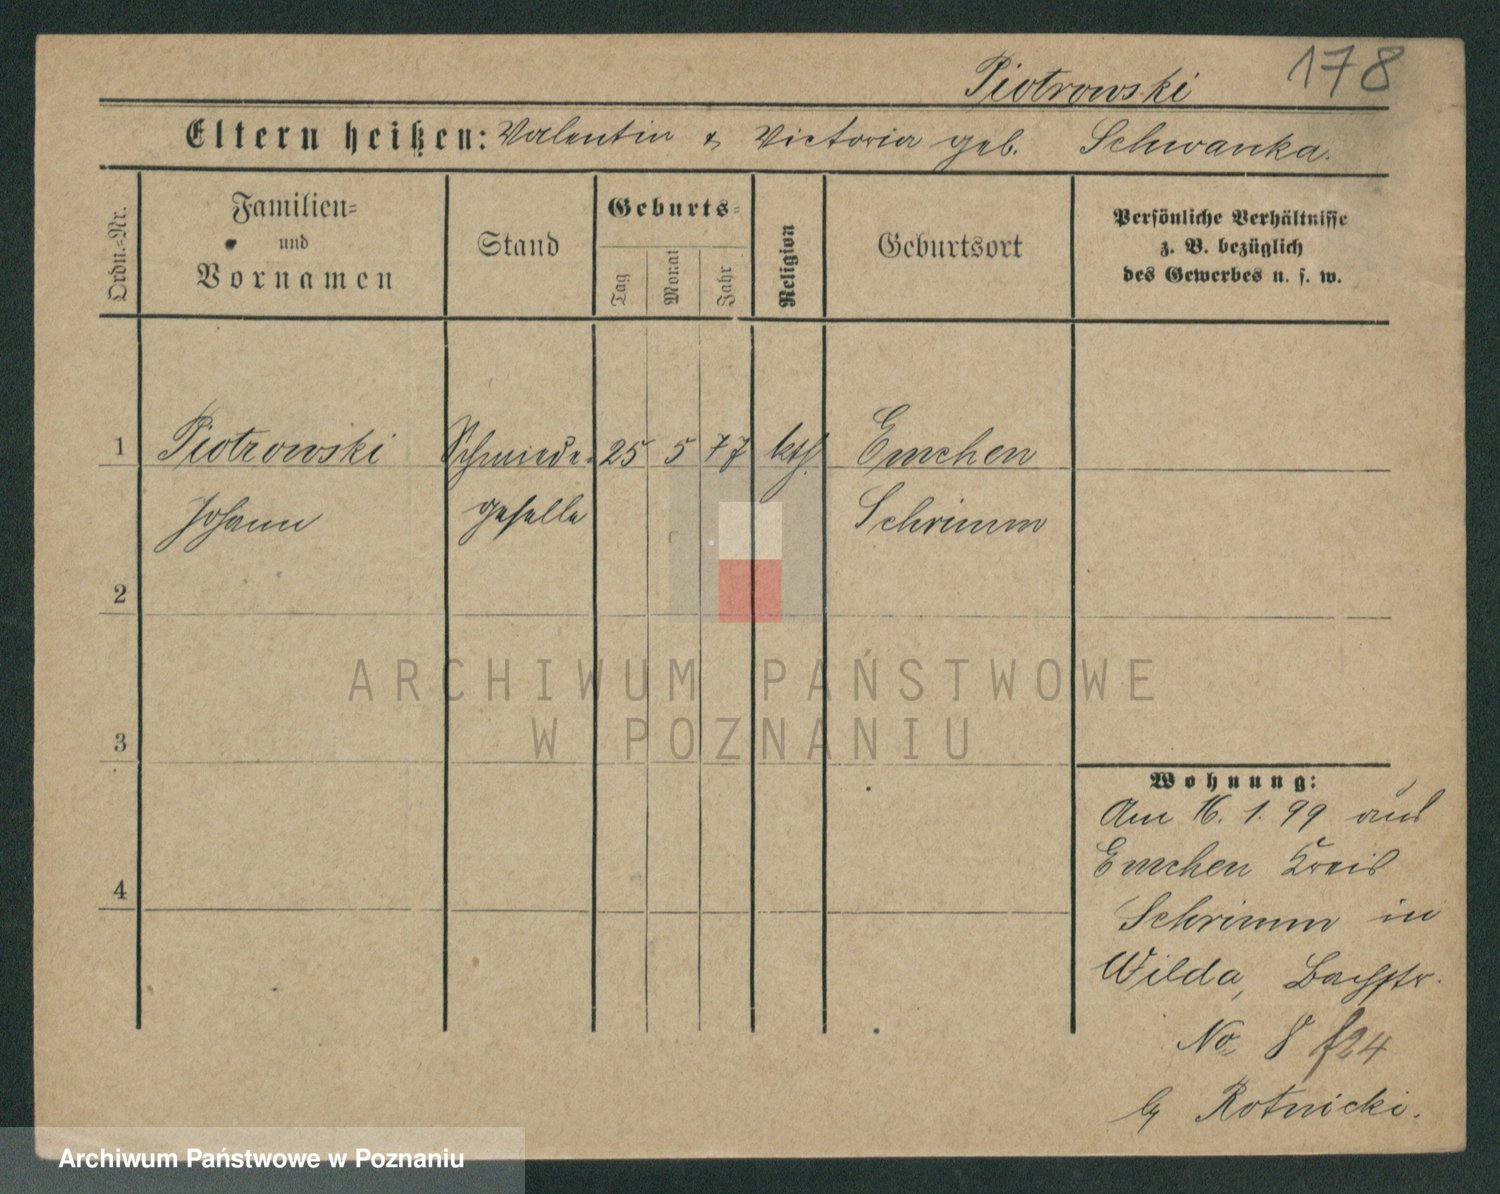 178
Piotrowski
Eltern heißen: Valentin & Victoria geb. Schwanka.
Ordn.-Nr.
Familien- und Vornamen
Stand
Geburts-
Tag
Monat
Jahr
Religion
Geburtsort
Persönliche Verhältnisse
z. B. bezüglich
des Gewerbes u. s. w.
1 Piotrowski Schmiede- 25 5 77 kth. Emchen
Johann geselle Schrimm
2
3
4
ARCHIWUM PAŃSTWOWE
W POZNANIU
Wohnung:
Am 16. 1. 99 aus
Emchen Kreis
Schrimm in
Wilda, Bachstr.
No 8 f24
by Rotnicki.
Archiwum Państwowe w Poznaniu